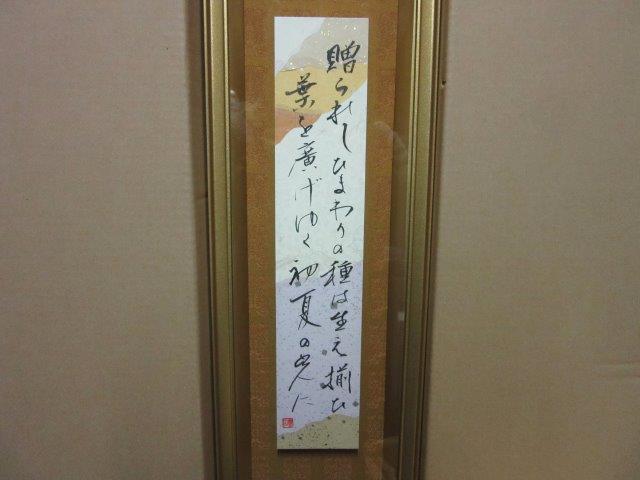 贈られしひまわりの種は生え揃ひ
葉を廣げゆく初夏の光に